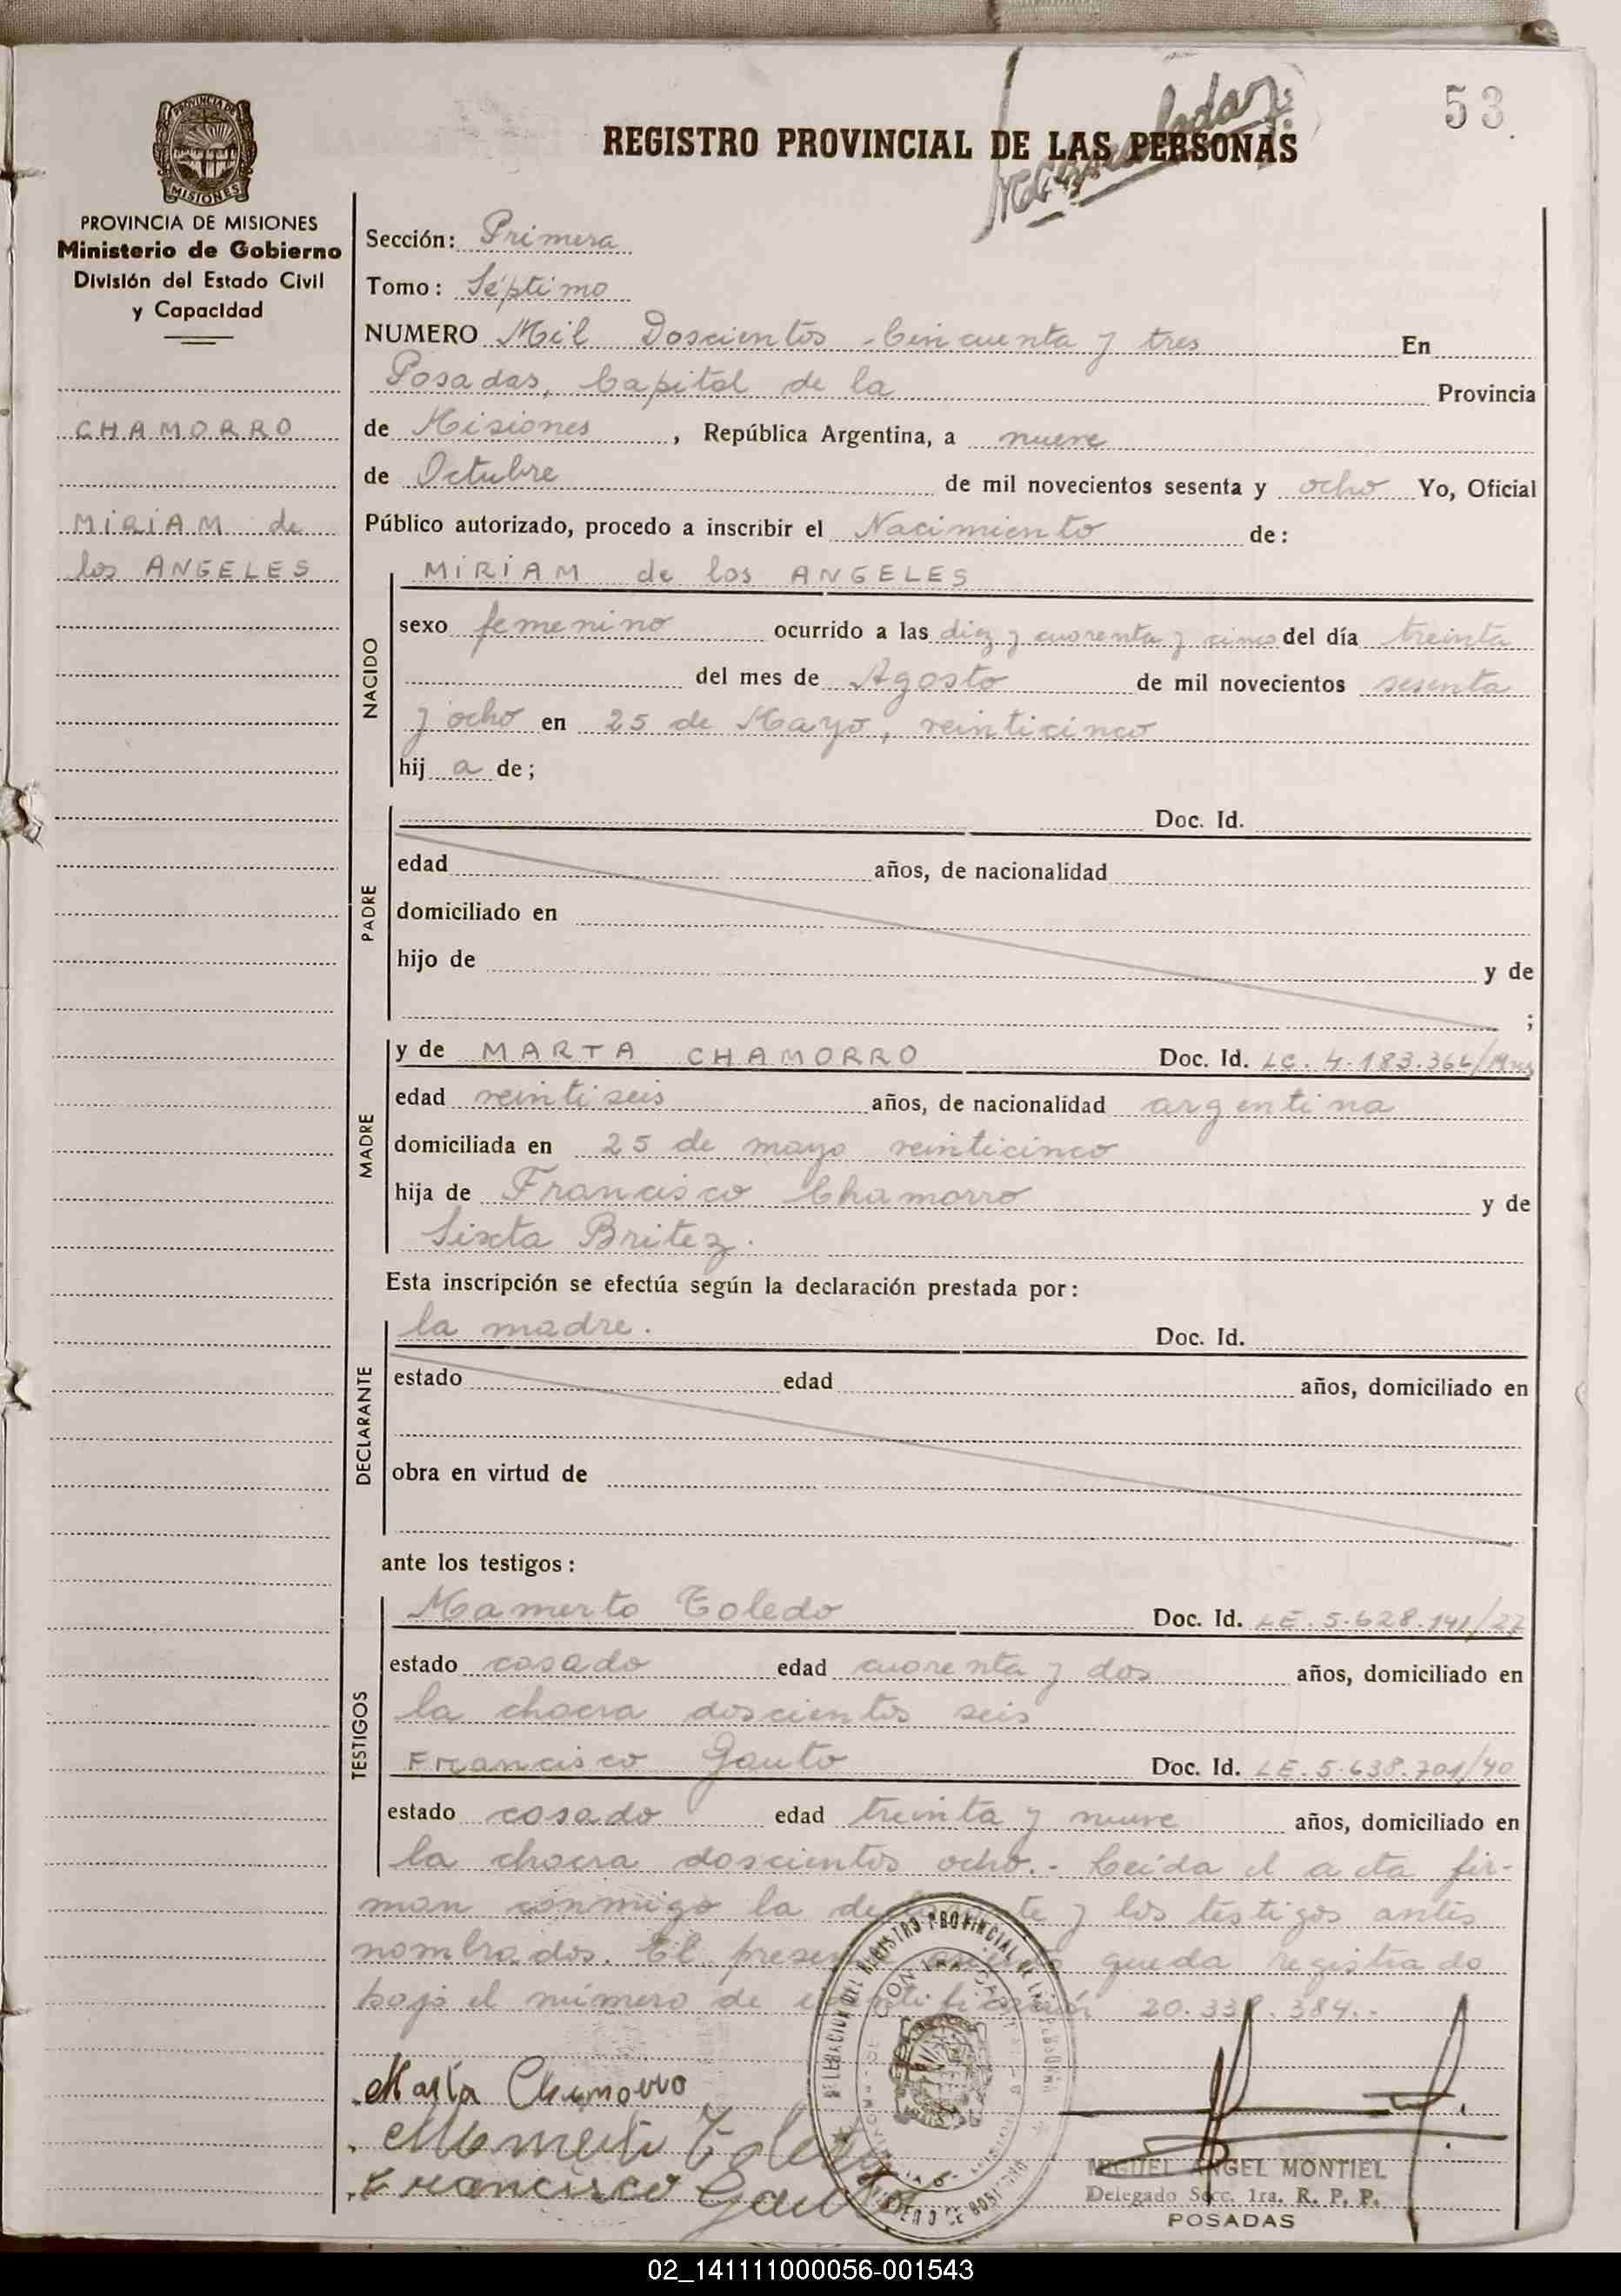 53
PROVINCIA DE
MISIONES
REGISTRO PROVINCIAL DE LAS PERSONAS
PROVINCIA DE MISIONES
Ministerio de Gobierno
División del Estado Civil
y Capacidad
CHAMORRO
MiRiAM de
los ANGELES
Sección: Primera
Tomo: Séptimo
NUMERO Mil Doscientos Cincuenta y tres En
Posadas, Capital de la Provincia
de Misiones, República Argentina, a nueve
de Octubre de mil novecientos sesenta y ocho Yo, Oficial
Público autorizado, procedo a inscribir el Nacimiento de:
NACIDO
MiRiAM de los ANGELES
sexo femenino ocurrido a las diez y cuarenta y cinco del día treinta
del mes de Agosto de mil novecientos sesenta
y ocho en 25 de Mayo, veinticinco
hij a de;
PADRE
Doc. Id.
edad años, de nacionalidad
domiciliado en
hijo de y de
;
MADRE
y de MARTA CHAMORRO Doc. Id. LC. 4.183.366/Mnes
edad veintiseis años, de nacionalidad argentina
domiciliada en 25 de mayo veinticinco
hija de Francisco Chamorro y de
Sixta Britez.
Esta inscripción se efectúa según la declaración prestada por:
DECLARANTE
la madre. Doc. Id.
estado edad años, domiciliado en
obra en virtud de
ante los testigos:
TESTIGOS
Mamerto Toledo Doc. Id. LE. 5.628.141/27
estado casado edad cuarenta y dos años, domiciliado en
la chacra doscientos seis
Francisco Gauto Doc. Id. LE. 5.638.701/40
estado casado edad treinta y nueve años, domiciliado en
la chacra doscientos ocho.- Leída el acta fir-
man conmigo la y los testigos antes
nombrados. El queda registrado
bajo el número de identificación 20.338.384.-
Marta Chamorro
Mamerto Toledo
Francisco Gauto
MIGUEL ANGEL MONTIEL
Delegado Secc. 1ra. R. P. P.
POSADAS
02_141111000056-001543